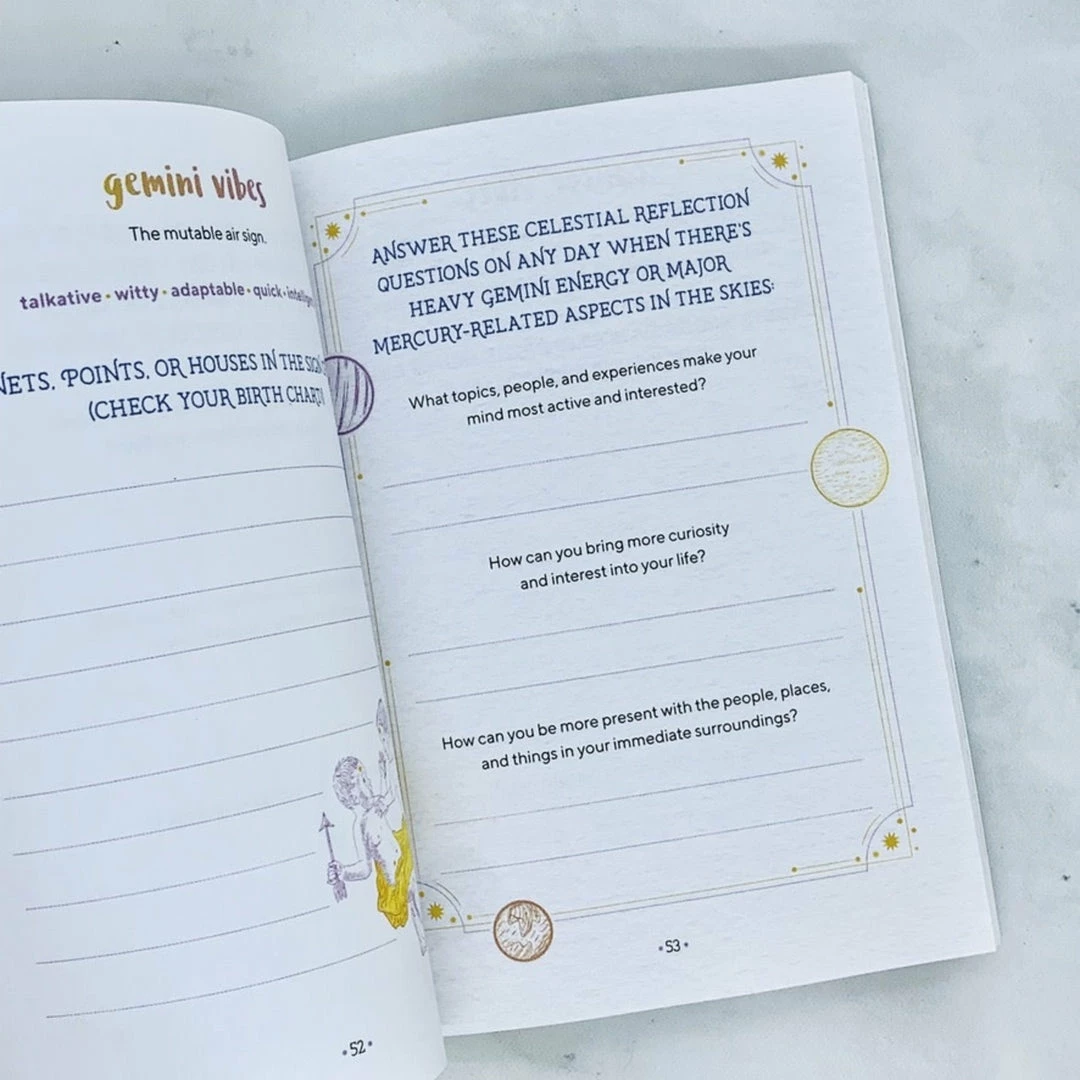 gemini vibes
The mutable air sign.
talkative • witty • adaptable • quick •
POINTS, OR HOUSES IN THE
(CHECK YOUR BIRTH CHART)
• 52 •
ANSWER THESE CELESTIAL REFLECTION
QUESTIONS ON ANY DAY WHEN THERE'S
HEAVY GEMINI ENERGY OR MAJOR
MERCURY-RELATED ASPECTS IN THE SKIES:
What topics, people, and experiences make your
mind most active and interested?
How can you bring more curiosity
and interest into your life?
How can you be more present with the people, places,
and things in your immediate surroundings?
• 53 •